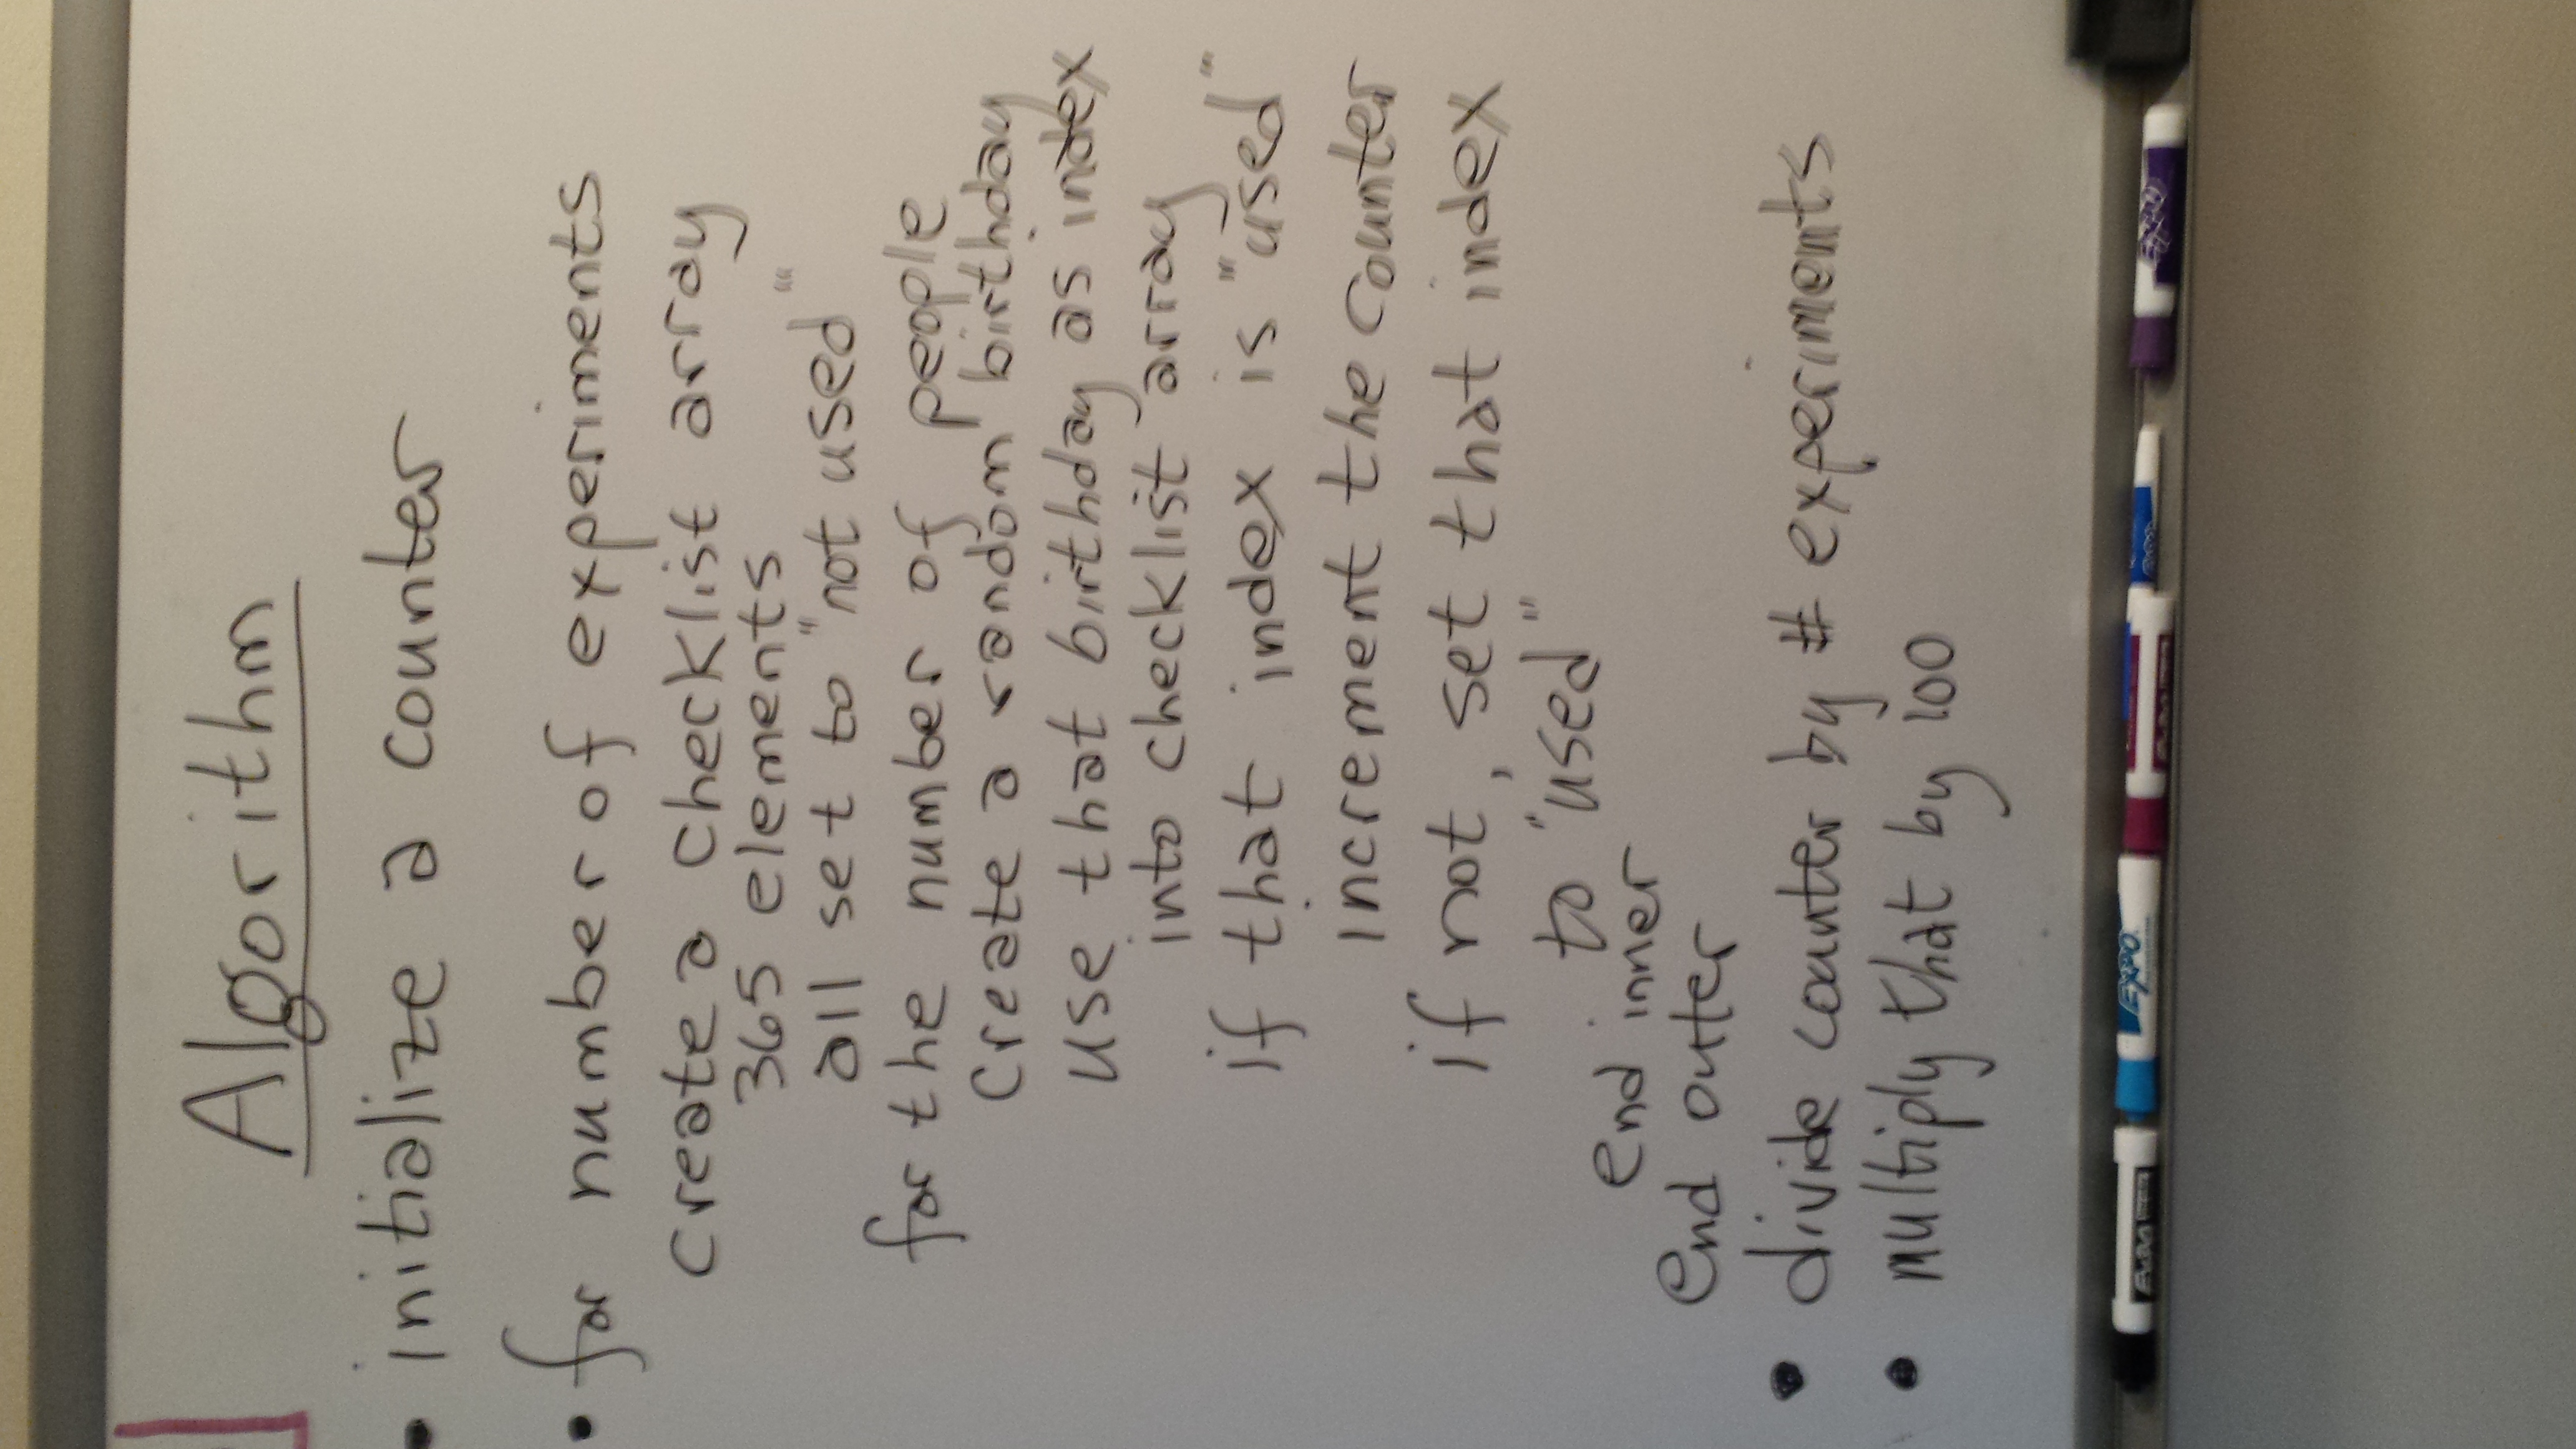 Algorithm
• initialize a counter
• for number of experiments
create a checklist array
365 elements
all set to "not used"
for the number of people
create a random birthday
use that birthday as index
into checklist array
if that index is "used"
increment the counter
if not, set that index
to "used"
end inner
end outer
• divide counter by # experiments
• multiply that by 100
EXPO EXPO EXPO EXPO